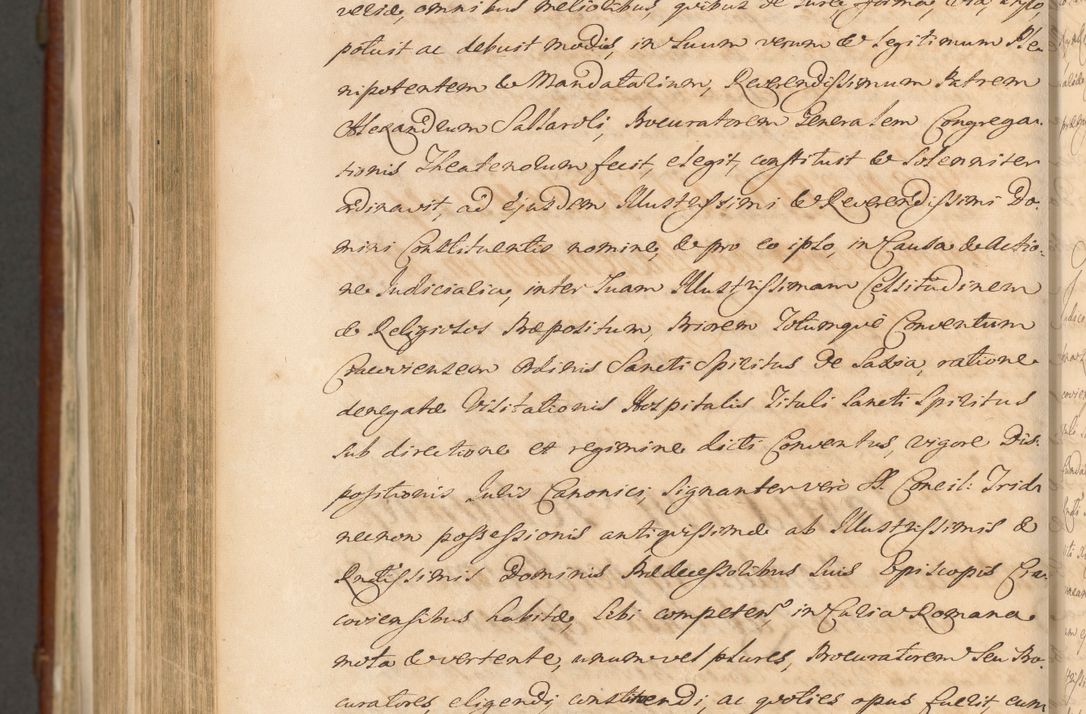 versiæ, omnibus melioribus, quibus de Jure, forma, via,
potuit ac debuit modis, in Suum verum & legitimum Ple-
nipotentem & Mandatarium, Reverendissimum Patrem
Alexandrum Sallaroli, Procuratorem Generalem Congrega-
tionis Theatenorum fecit, elegit, constituit & Solenniter
ordinavit, ad ejusdem Illustrissimi & Reverendissimi Do-
mini Constituentis nomine, & pro eo ipso, in Causa & Actio-
ne Judicialia, inter Suam Illustrissimam Celsitudinem
& Religiosos Præpositum, Priorem Totumque Conventum
Cracoviensem Ordinis Sancti Spiritus De Saxia, ratione
denegatæ Visitationis Hospitalis Tituli Sancti Spiritus
sub directione et regimine dicti Conventus, vigore Dis-
positionis Juris Canonici, Signanter vero S. Concil: Trid:
necnon possessionis antiquissimæ ab Illustrissimis &
Rndissimis Dominis Prædecessoribus Suis Episcopis Cra-
coviensibus habitæ, sibi competen. in Curia Romana
mota & vertente, unum vel plures, Procuratorem Seu Pro-
curatores, eligendi, constituendi, ac quoties opus fuerit, eum